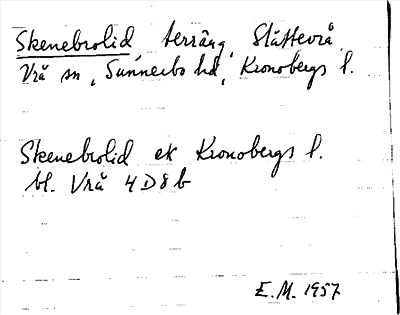 Skenebrolid, terräng, Slättevrå,
Vrå sn, Sunnerbo hd, Kronobergs l.
Skenebrolid ek Kronobergs l.
bl. Vrå 4D8b
E.M. 1957